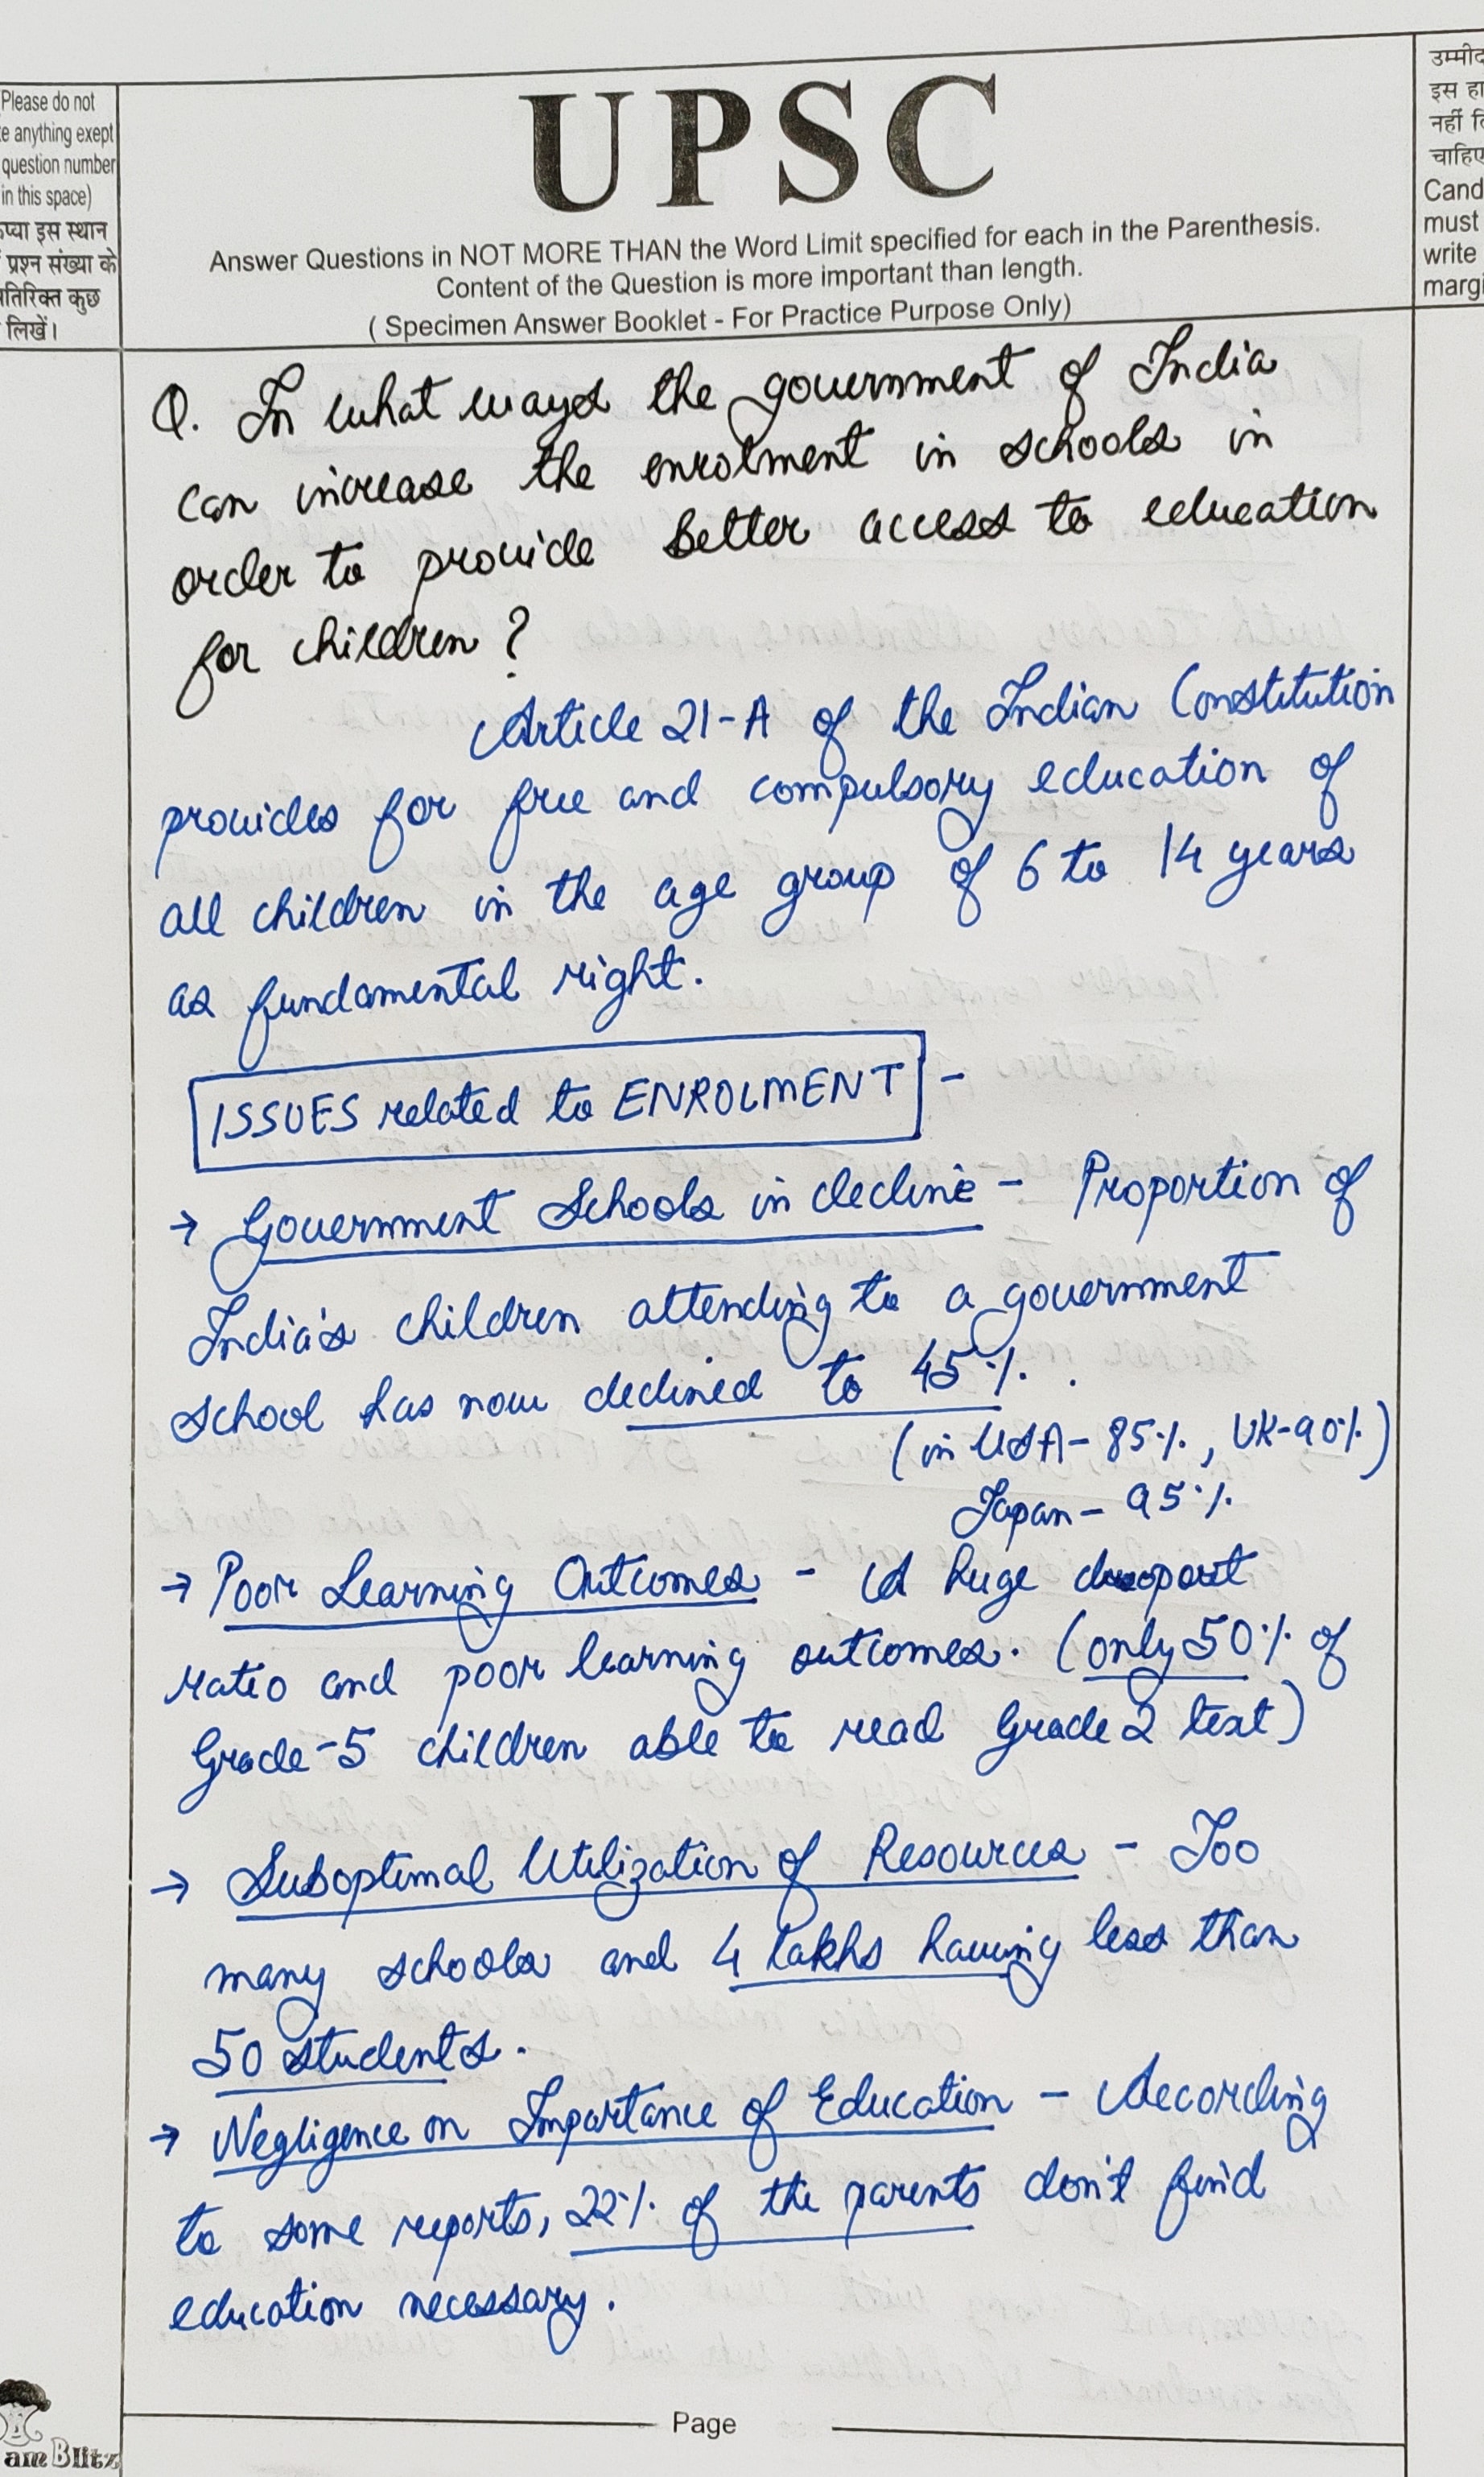 Please do not
te anything exept
question number
in this space)
कृप्या इस स्थान
प्रश्न संख्या के
अतिरिक्त कुछ
लिखें।
UPSC
Answer Questions in NOT MORE THAN the Word Limit specified for each in the Parenthesis.
Content of the Question is more important than length.
( Specimen Answer Booklet - For Practice Purpose Only)
उम्मीद
इस हा
नहीं
चाहिए
Cand
must
write
margi
Q. In what ways the government of India
can increase the enrolment in schools in
order to provide better access to education
for children ?
Article 21-A of the Indian Constitution
provides for free and compulsory education of
all children in the age group of 6 to 14 years
as fundamental right.
ISSUES related to ENROLMENT -
→ Government Schools in decline - Proportion of
India's children attending to a government
school has now declined to 45%.
(in USA- 85%, UK-90%)
Japan- 95%
→ Poor Learning Outcomes - A huge dropout
ratio and poor learning outcomes. (only 50% of
Grade-5 children able to read Grade 2 text)
→ Suboptimal Utilization of Resources - Too
many schools and 4 lakhs having less than
50 students.
→ Negligence on Importance of Education - According
to some reports, 22% of the parents don't find
education necessary.
Page
am Blitz